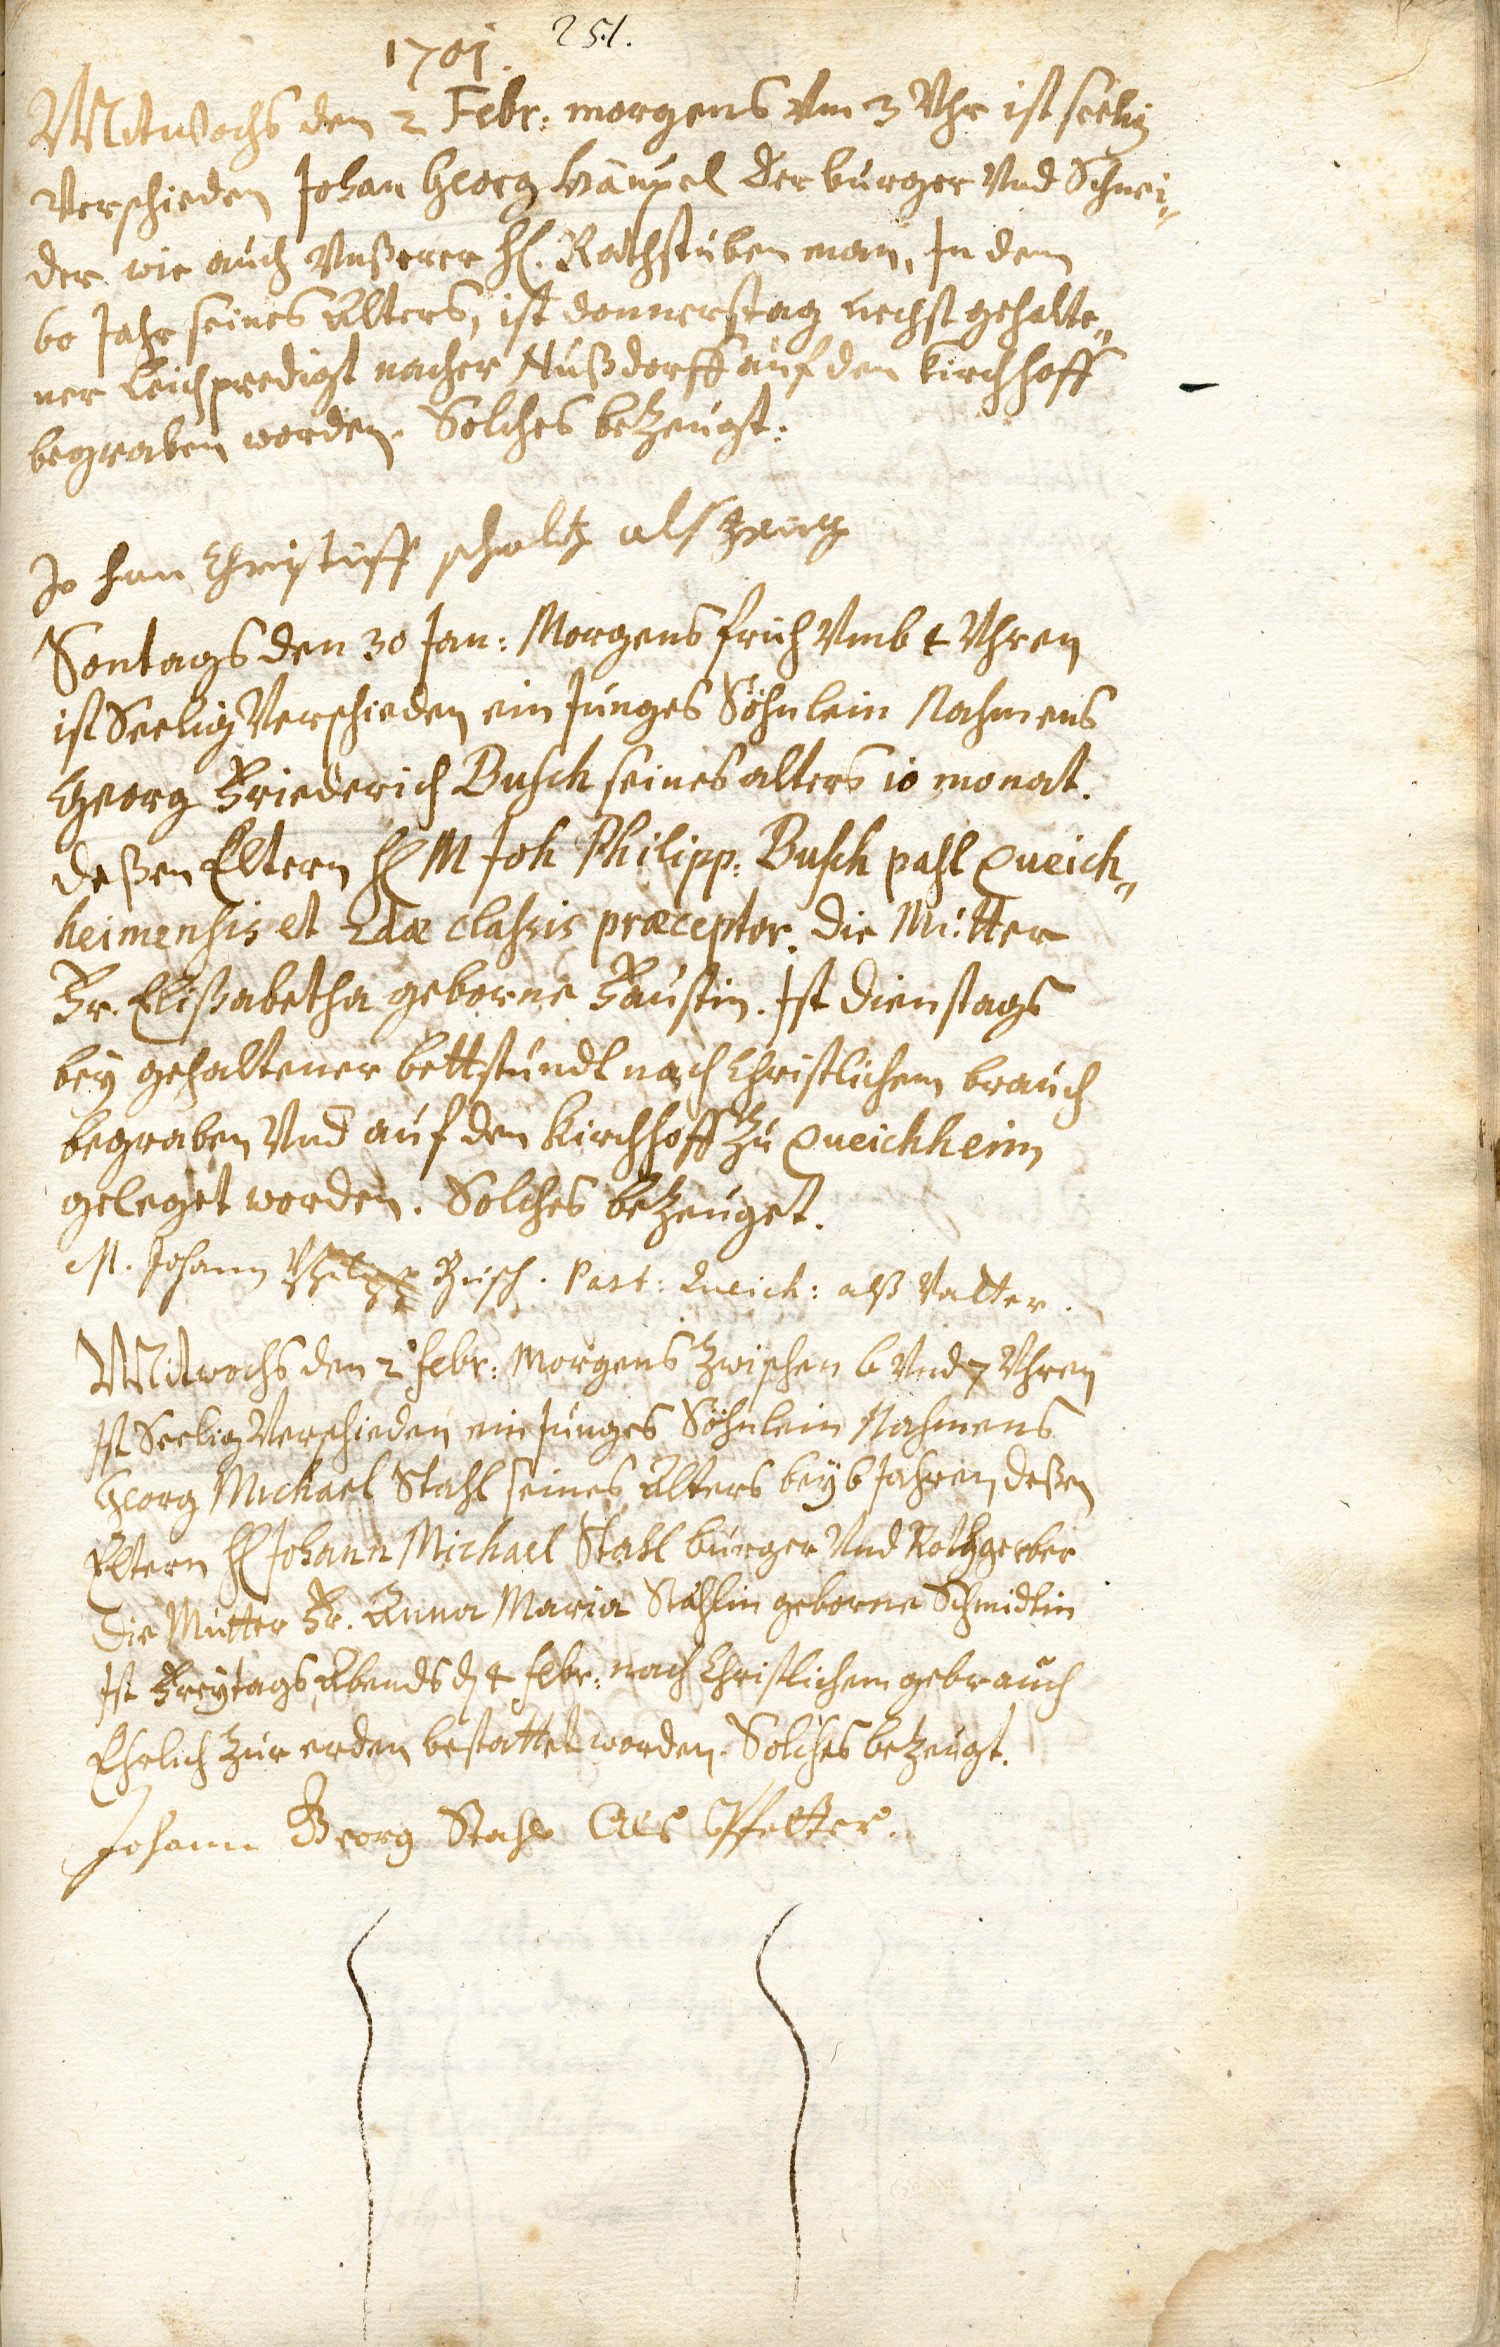 1701. 251.
Mitwochs den 2 Febr: morgens Vm 3 Vhr ist seelig
Verschieden Johan Georg der burger Vnd Schnei„
der wie auch Vnßerer H. Rathstuben man, In dem
60 Jahr seines Alters, ist donnerstag nechst gehalte„
ner Leichpredigt nacher Nußdorff auf den Kirchhoff
begraben worden. Solches beZeugt:
Johan Christuff scholtz alß Zeug
Sontags den 30 Jan: Morgens frich Vmb 4 Vhren
ist Seelig Verschieden ein Junges Söhnlein Nahmens
Georg Friederich Busch seines alters 10 monat.
deßen Eltern H M Joh Philipp: Busch past Queich„
heimensis et 2dæ classis præceptor. die Mutter
Fr. Elisabetha geborne Faustin. Ist dienstags
bey gehaltener bettstundt nach Christlichem brauch
begraben Vnd auf den Kirchhoff Zu Queichheim
geleget worden. Solches beZeuget.
M. Johann Philipp Busch. Past: Queich: alß Vatter.
Mitwochs den 2 febr: Morgens Zwischen 6 Vnd 7 Vhren
Ist Seelig Verschieden ein Junges Söhnlein Nahmens
Georg Michael Stahl seines Alters bey 6 Jahren, deßen
Eltern H Johann Michael Stahl burger Vnd Rothgerber
die Mutter Fr. Anna Maria Stahlin geborne Schmidtin
Ist Freytags Abends d 4 febr: nach Christlichem gebrauch
Ehrlich Zur erden bestattet worden. Solches beZeugt.
Johann Georg Stahl Als Pfetter.